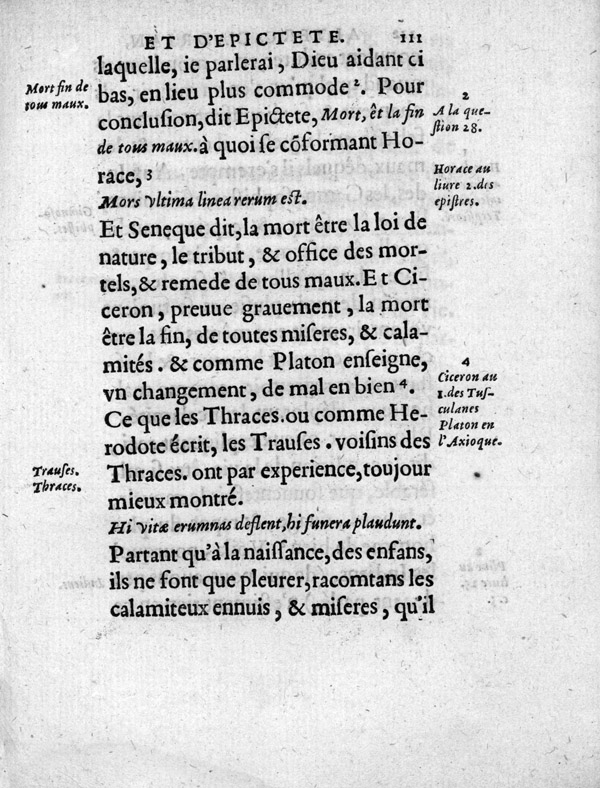 ET D'EPICTETE. 111
laquelle, ie parlerai, Dieu aidant ci
bas, en lieu plus commode². Pour
conclusion, dit Epictete, Mort, êt la fin
de tous maux. à quoi se cōformant Ho-
race, 3
Mors vltima linea rerum est.
Et Seneque dit, la mort être la loi de
nature, le tribut, & office des mor-
tels, & remede de tous maux. Et Ci-
ceron, preuue grauement, la mort
être la fin, de toutes miseres, & cala-
mités. & comme Platon enseigne,
vn changement, de mal en bien⁴.
Ce que les Thraces. ou comme He-
rodote écrit, les Trauses. voisins des
Thraces. ont par experience, toujour
mieux montré.
Hi vitæ erumnas deflent, hi funera plaudunt.
Partant qu'à la naissance, des enfans,
ils ne font que pleurer, racomtans les
calamiteux ennuis, & miseres, qu'il
Mort fin de
tous maux.
Trauses.
Thraces.
2
A la que-
stion 28.
Horace au
liure 2. des
epistres.
4
Ciceron au
1. des Tus-
culanes
Platon en
l'Axioque.